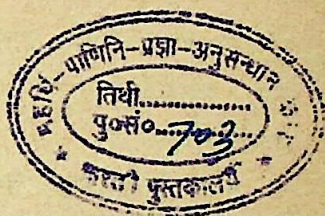 महर्षि-पाणिनि-प्रज्ञा-अनुसन्धान
तिथी..............
पु०सं०..703..
पुस्तकालय